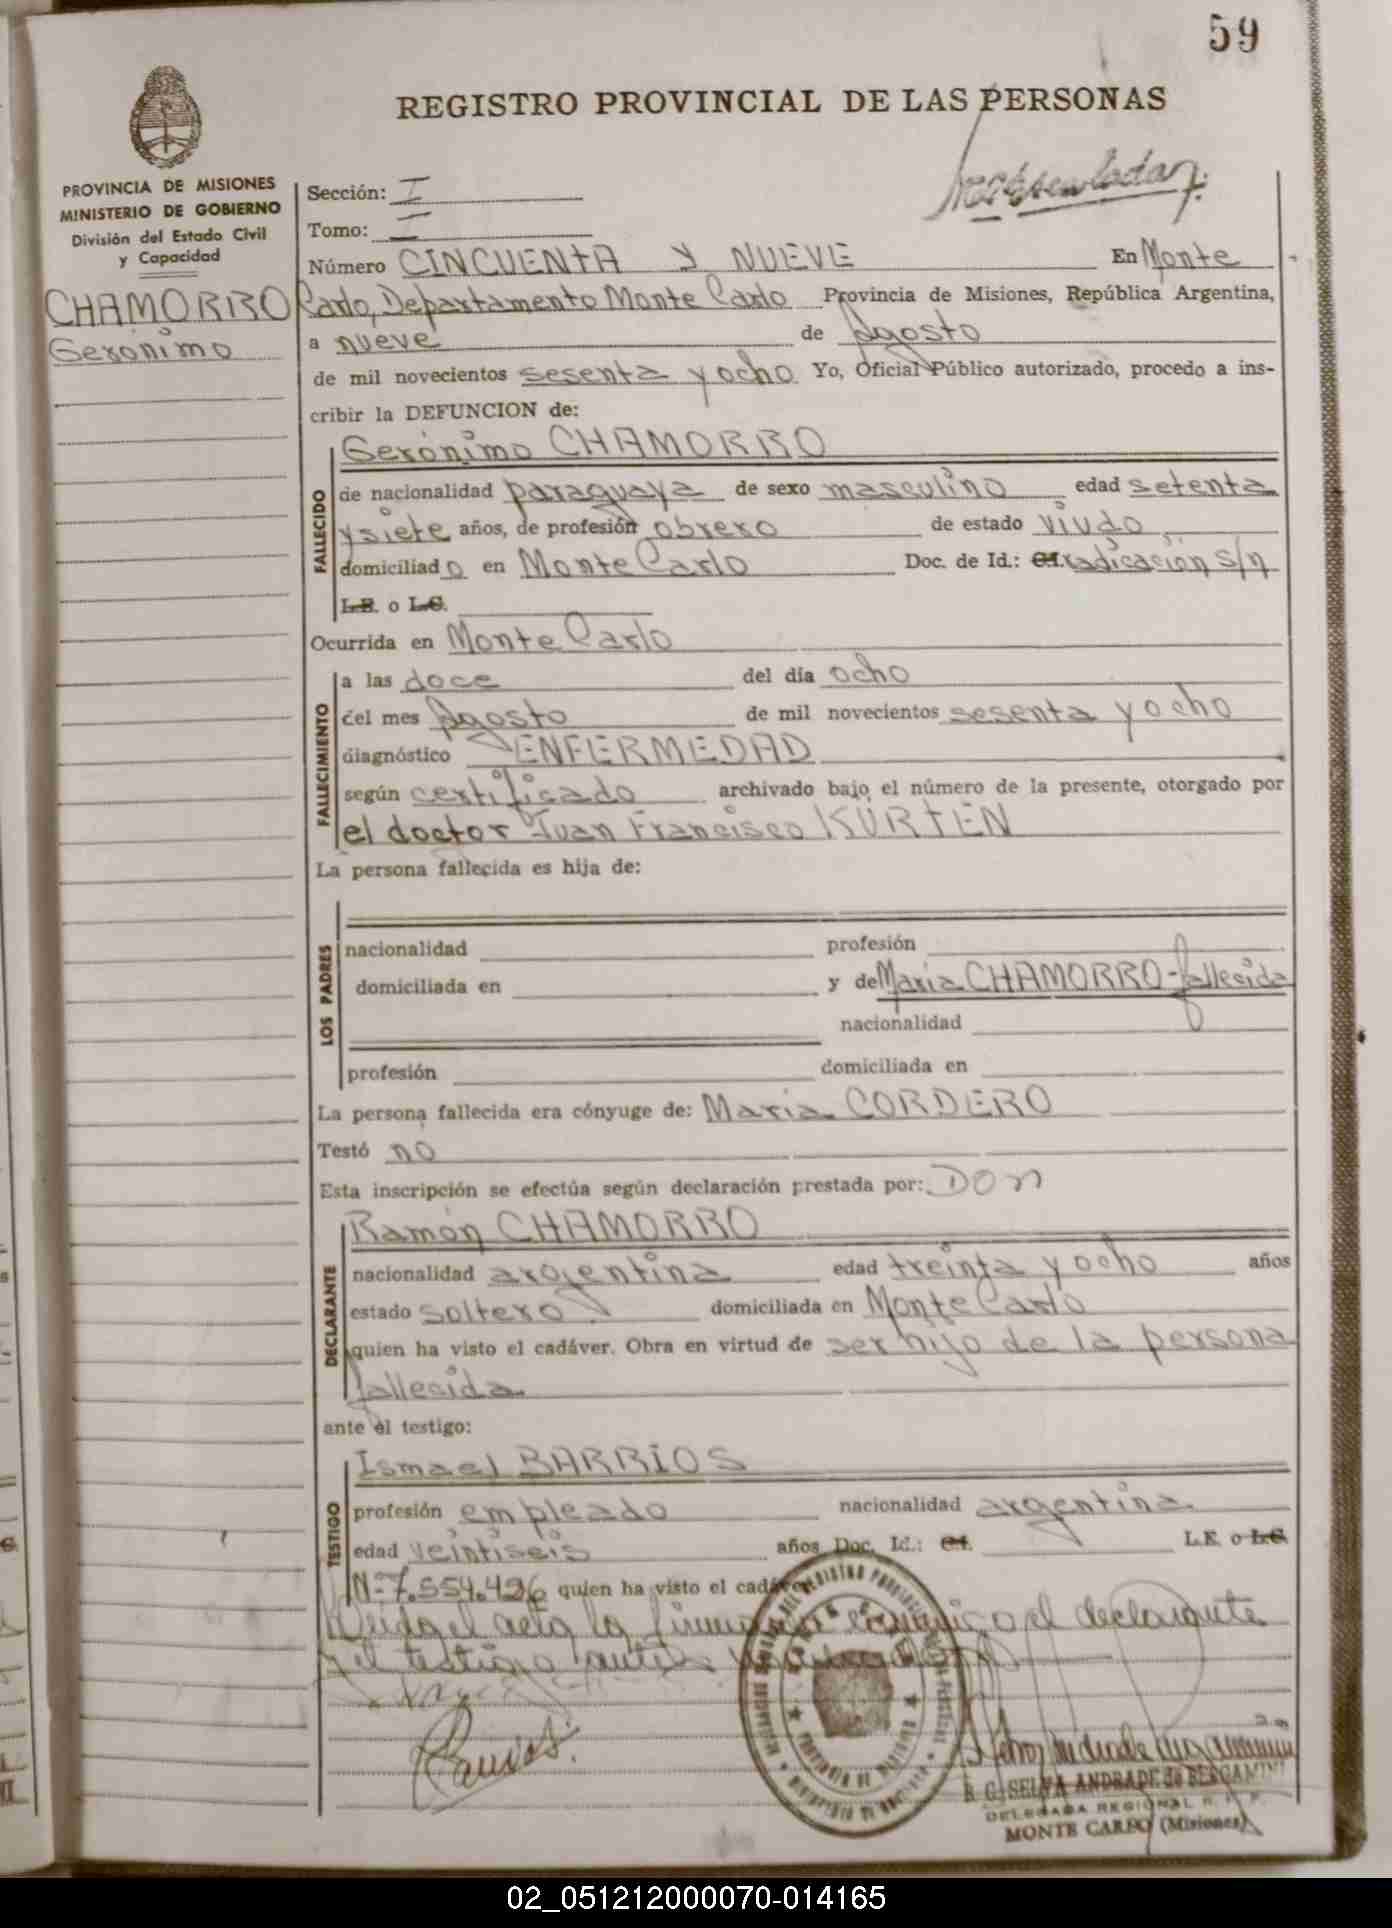 59
REGISTRO PROVINCIAL DE LAS PERSONAS
PROVINCIA DE MISIONES
MINISTERIO DE GOBIERNO
División del Estado Civil
y Capacidad
CHAMORRO
Gerónimo
Sección: I
Tomo: I
Número CINCUENTA Y NUEVE En Monte
Carlo, Departamento Monte Carlo Provincia de Misiones, República Argentina,
a nueve de Agosto
de mil novecientos sesenta y ocho Yo, Oficial Público autorizado, procedo a ins-
cribir la DEFUNCION de:
FALLECIDO
Gerónimo CHAMORRO
de nacionalidad paraguaya de sexo masculino edad setenta
y siete años, de profesión obrero de estado viudo
domiciliado en Monte Carlo Doc. de Id.: C.I. radicación s/n
L.E. o L.C.
Ocurrida en Monte Carlo
FALLECIMIENTO
a las doce del día ocho
del mes Agosto de mil novecientos sesenta y ocho
diagnóstico ENFERMEDAD
según certificado archivado bajo el número de la presente, otorgado por
el doctor Juan Francisco KÜRTEN
La persona fallecida es hija de:
LOS PADRES
nacionalidad profesión
domiciliada en y de María CHAMORRO-fallecida
nacionalidad
profesión domiciliada en
La persona fallecida era cónyuge de: María CORDERO
Testó no
Esta inscripción se efectúa según declaración prestada por: Don
DECLARANTE
Ramón CHAMORRO
nacionalidad argentina edad treinta y ocho años
estado soltero domiciliada en Monte Carlo
quien ha visto el cadáver. Obra en virtud de ser hijo de la persona
fallecida
ante el testigo:
TESTIGO
Ismael BARRIOS
profesión empleado nacionalidad argentina
edad veintiseis años Doc. Id.: C.I. L.E. o L.C.
Nº 7.554.426 quien ha visto el cadáver.
el acta la conmigo el declarante
y el testigo
Barrios.
REGISTRO PROVINCIAL
PROVINCIA DE MISIONES
R. G. SELVA ANDRADE de BERGAMINI
DELEGADA REGIONAL R. P. P.
MONTE CARLO (Misiones)
02_051212000070-014165